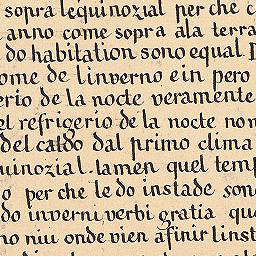 sopra lequinozial per che c
anno come sopra ala terra
do habitation sono equal
ome de linverno e in pero
erio de la nocte veramente
el refrigerio de la nocte non
del caldo dal primo clima
uinozial. lamen quel temp
o per che le do instade son
do inverni verbi gratia qu
no niu onde vien a finir linst